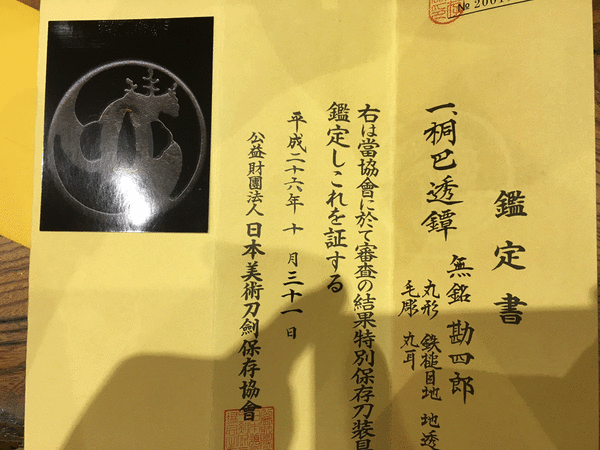 № 2001
鑑定書
一、桐巴透鐔 無銘 勘四郎
丸形 鉄槌目地 地透
毛彫 丸耳
右は當協會に於て審査の結果特別保存刀装具
鑑定しこれを証する
平成二十六年 十月三十一日
公益財團法人 日本美術刀劍保存協會